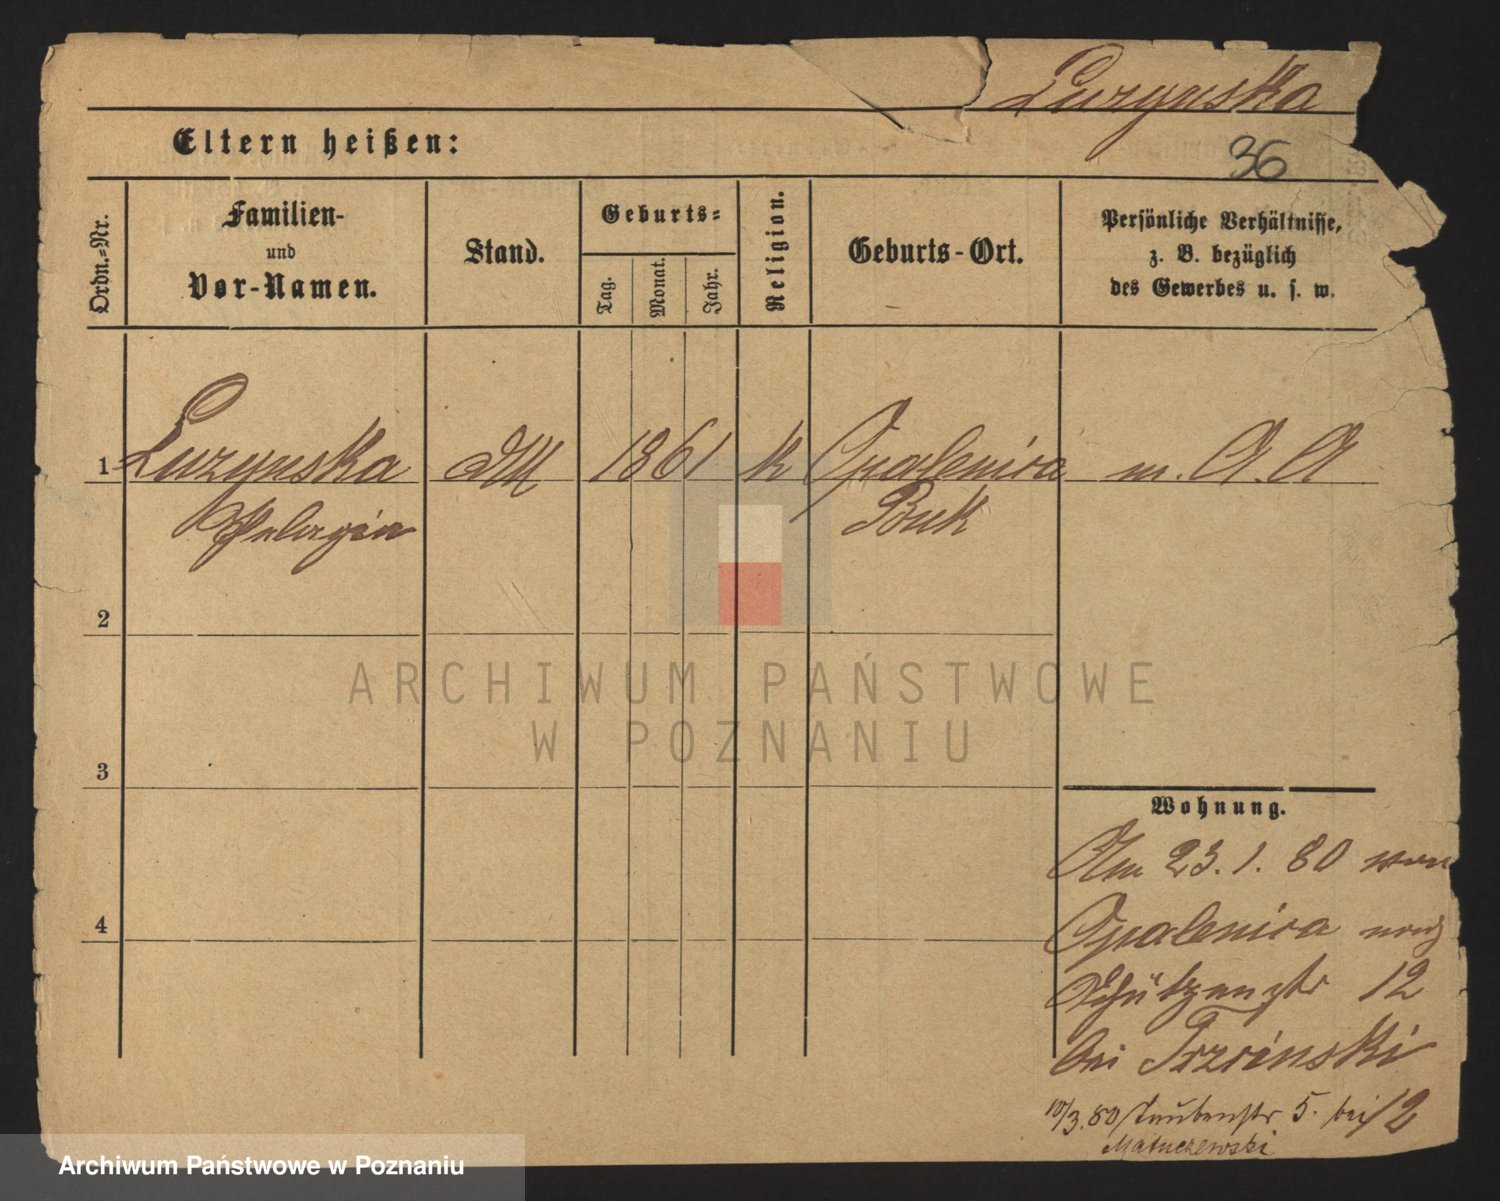 Luzynska
Eltern heißen:
36
Ordn.-Nr.
Familien-
und
Vor-Namen.
Stand.
Geburts-
Tag.
Monat.
Jahr.
Religion.
Geburts-Ort.
Persönliche Verhältnisse,
z. B. bezüglich
des Gewerbes u. s. w.
1 Luzynska 1861 k Opalenica m. A. A
Pelagia Buk
2
3
4
Wohnung.
Am 23. 1. 80 von
Opalenica nach
Schützenstr 12
bei Trzcinski
10/3. 80 Taubenstr 5. bei 12
Matuczewski
ARCHIWUM PAŃSTWOWE
W POZNANIU
Archiwum Państwowe w Poznaniu